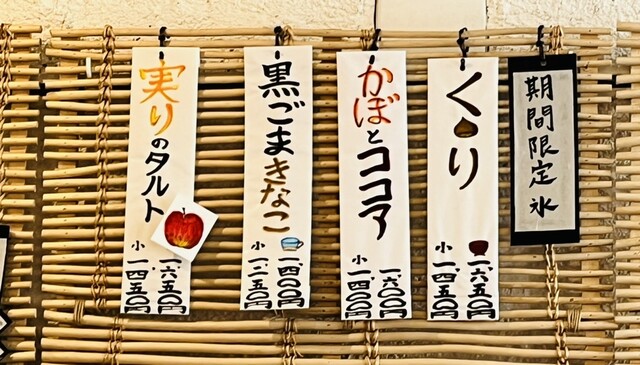 期間限定氷
くり
一、六五〇円
小 一、四五〇円
かぼとココア
一、六〇〇円
小 一、四〇〇円
黒ごまきなこ
一、四〇〇円
小 一、二五〇円
実りのタルト
一、六五〇円
小 一、四五〇円